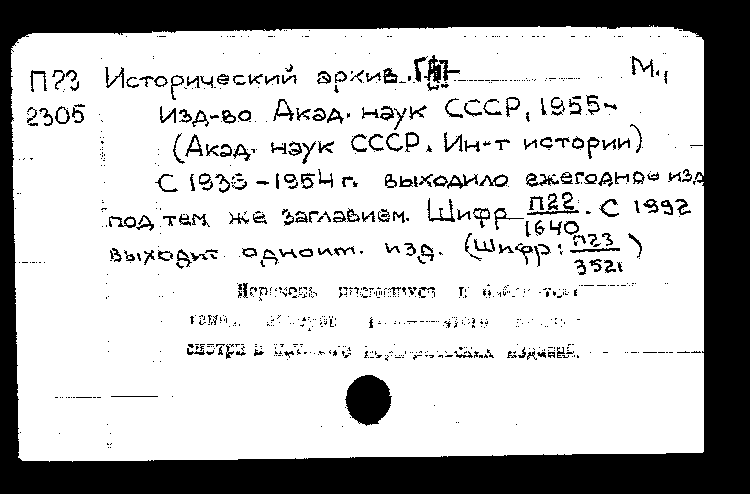 П23 Исторический архив. М.,
2305 Изд-во Акад. наук СССР, 1955-
(Акад. наук СССР. Ин-т истории)
С 1936-1954 г. выходило ежегодное изд
под тем же заглавием. Шифр П22/1640. С 1992
выходит одноим. изд. (Шифр: П23/3521)
Перечень имеющихся в
смотри в изданий